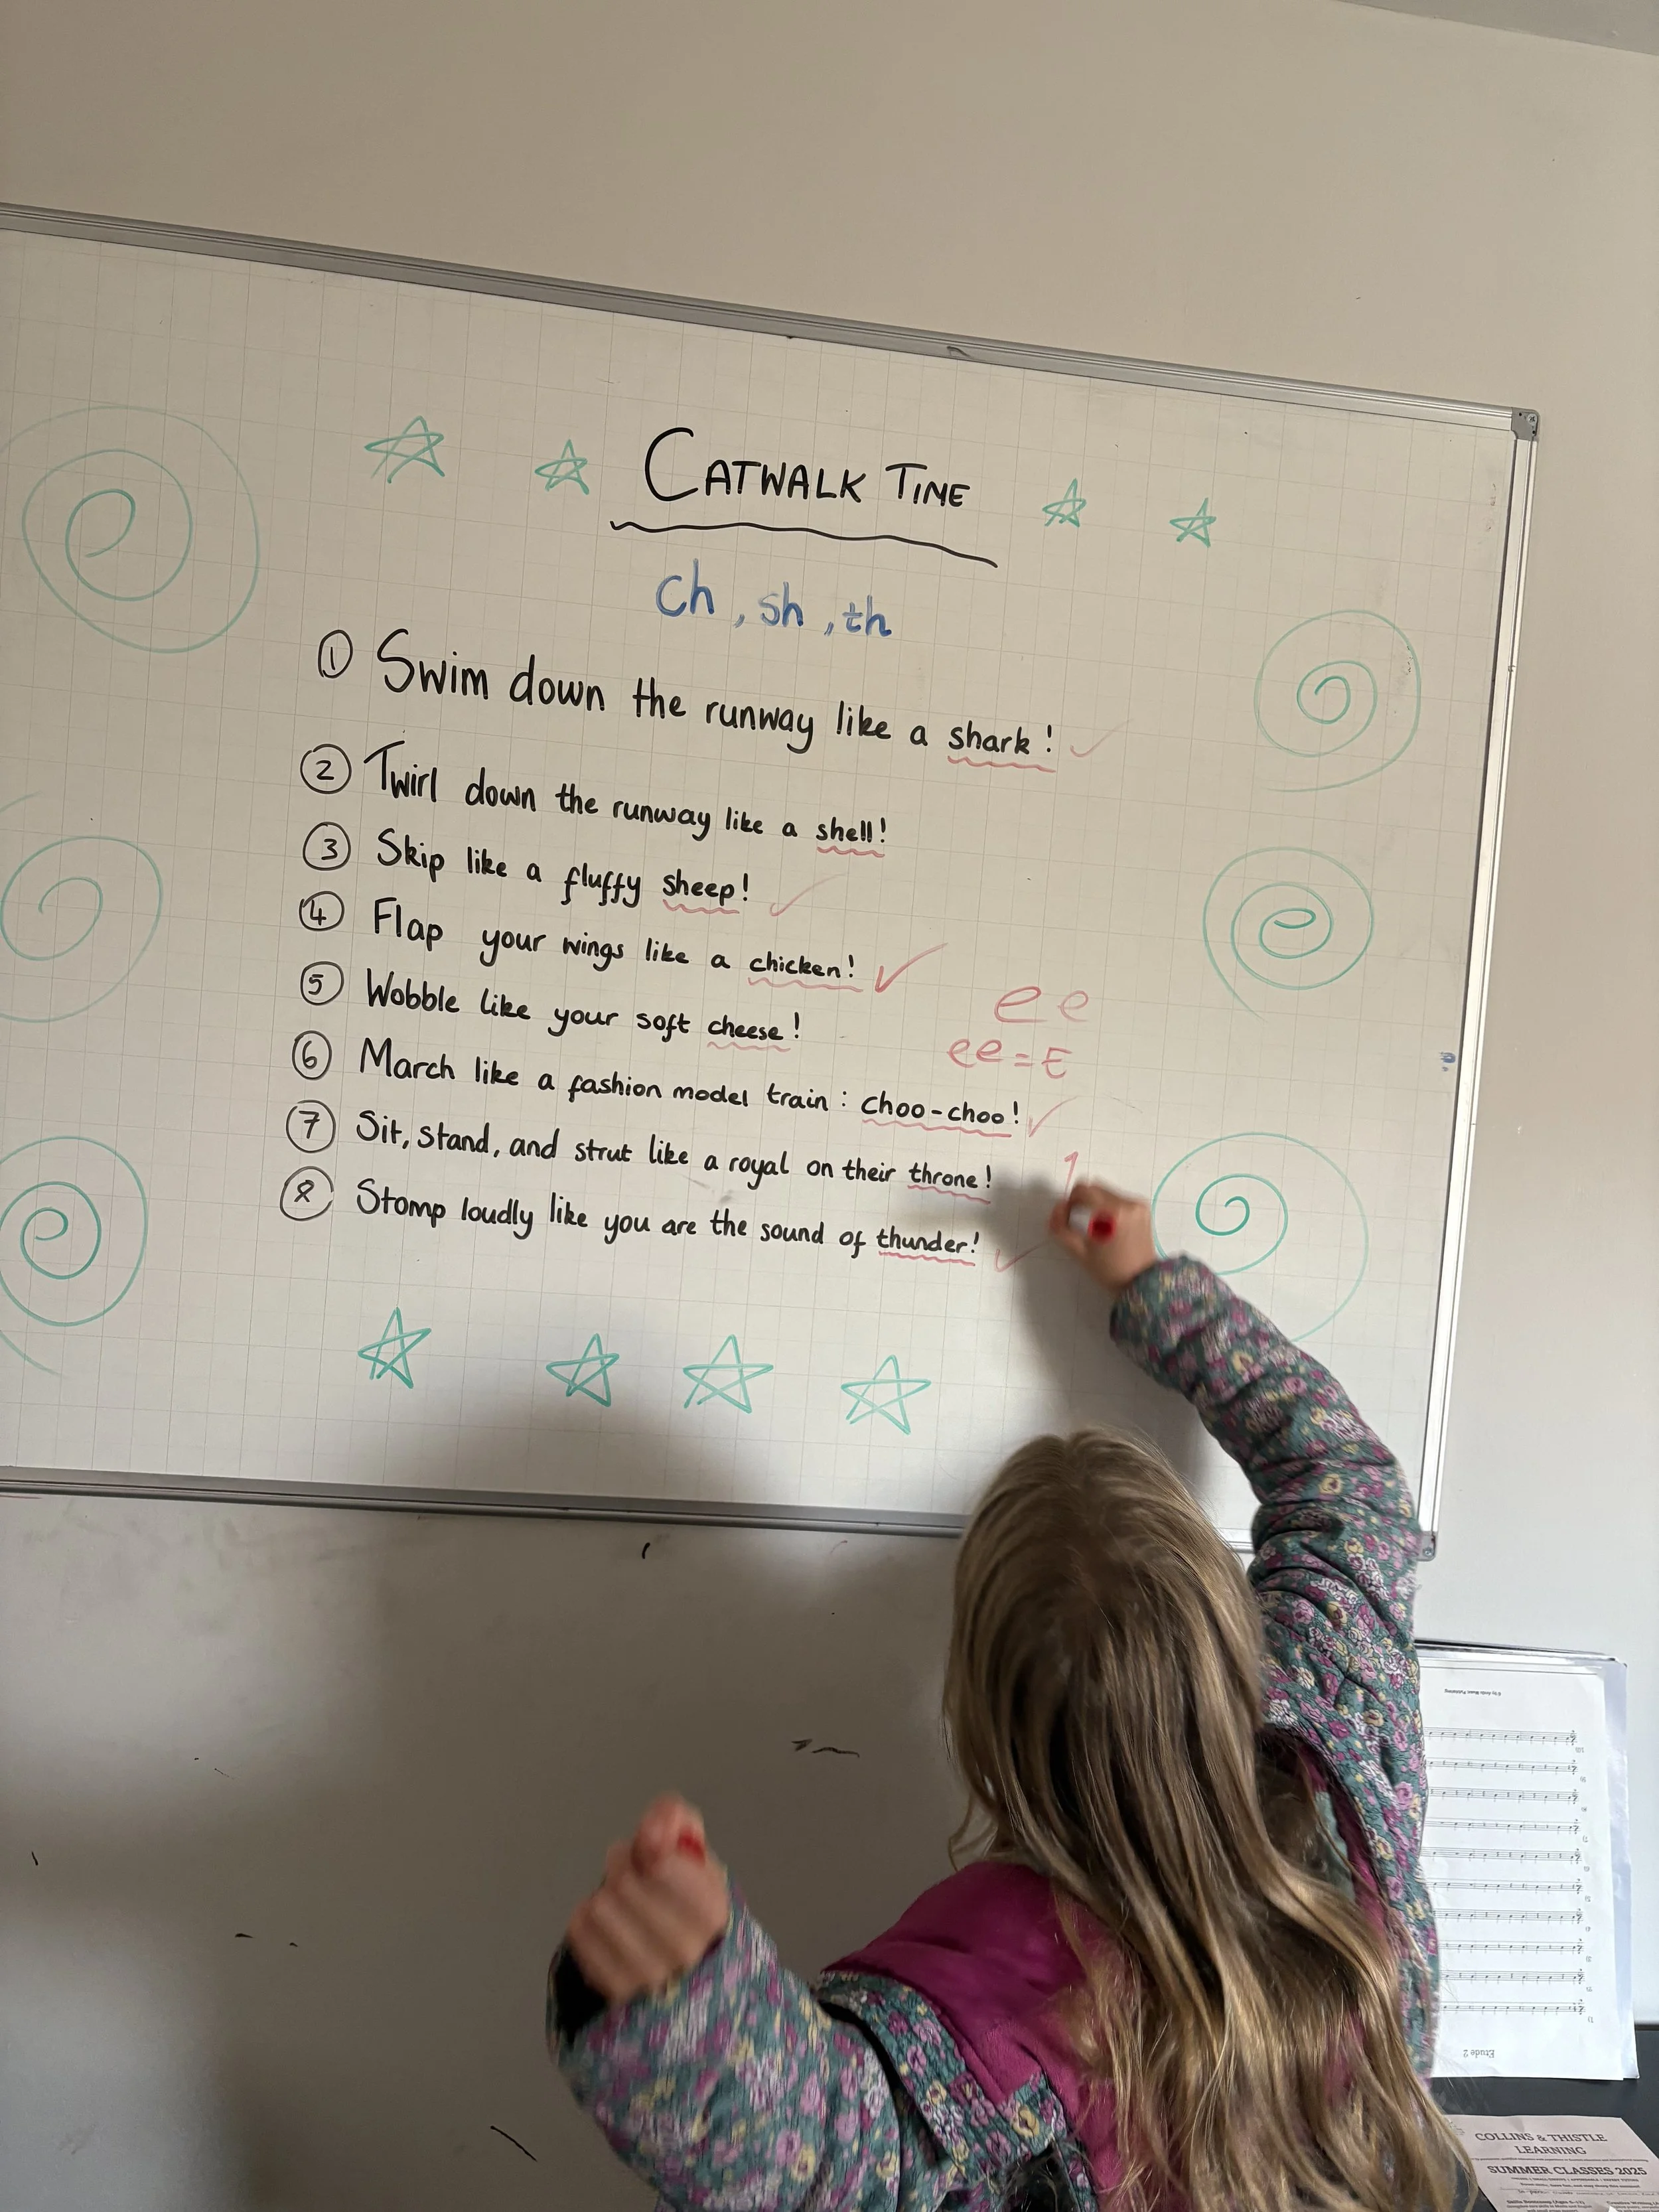 CATWALK TIME
ch, sh, th
① Swim down the runway like a shark!
② Twirl down the runway like a shell!
③ Skip like a fluffy sheep!
④ Flap your wings like a chicken!
⑤ Wobble like your soft cheese!
ee
ee = E
⑥ March like a fashion model train: choo-choo!
⑦ Sit, stand, and strut like a royal on their throne!
1
⑧ Stomp loudly like you are the sound of thunder!
Etude 2
COLLINS & THISTLE
LEARNING
SUMMER CLASSES 2025